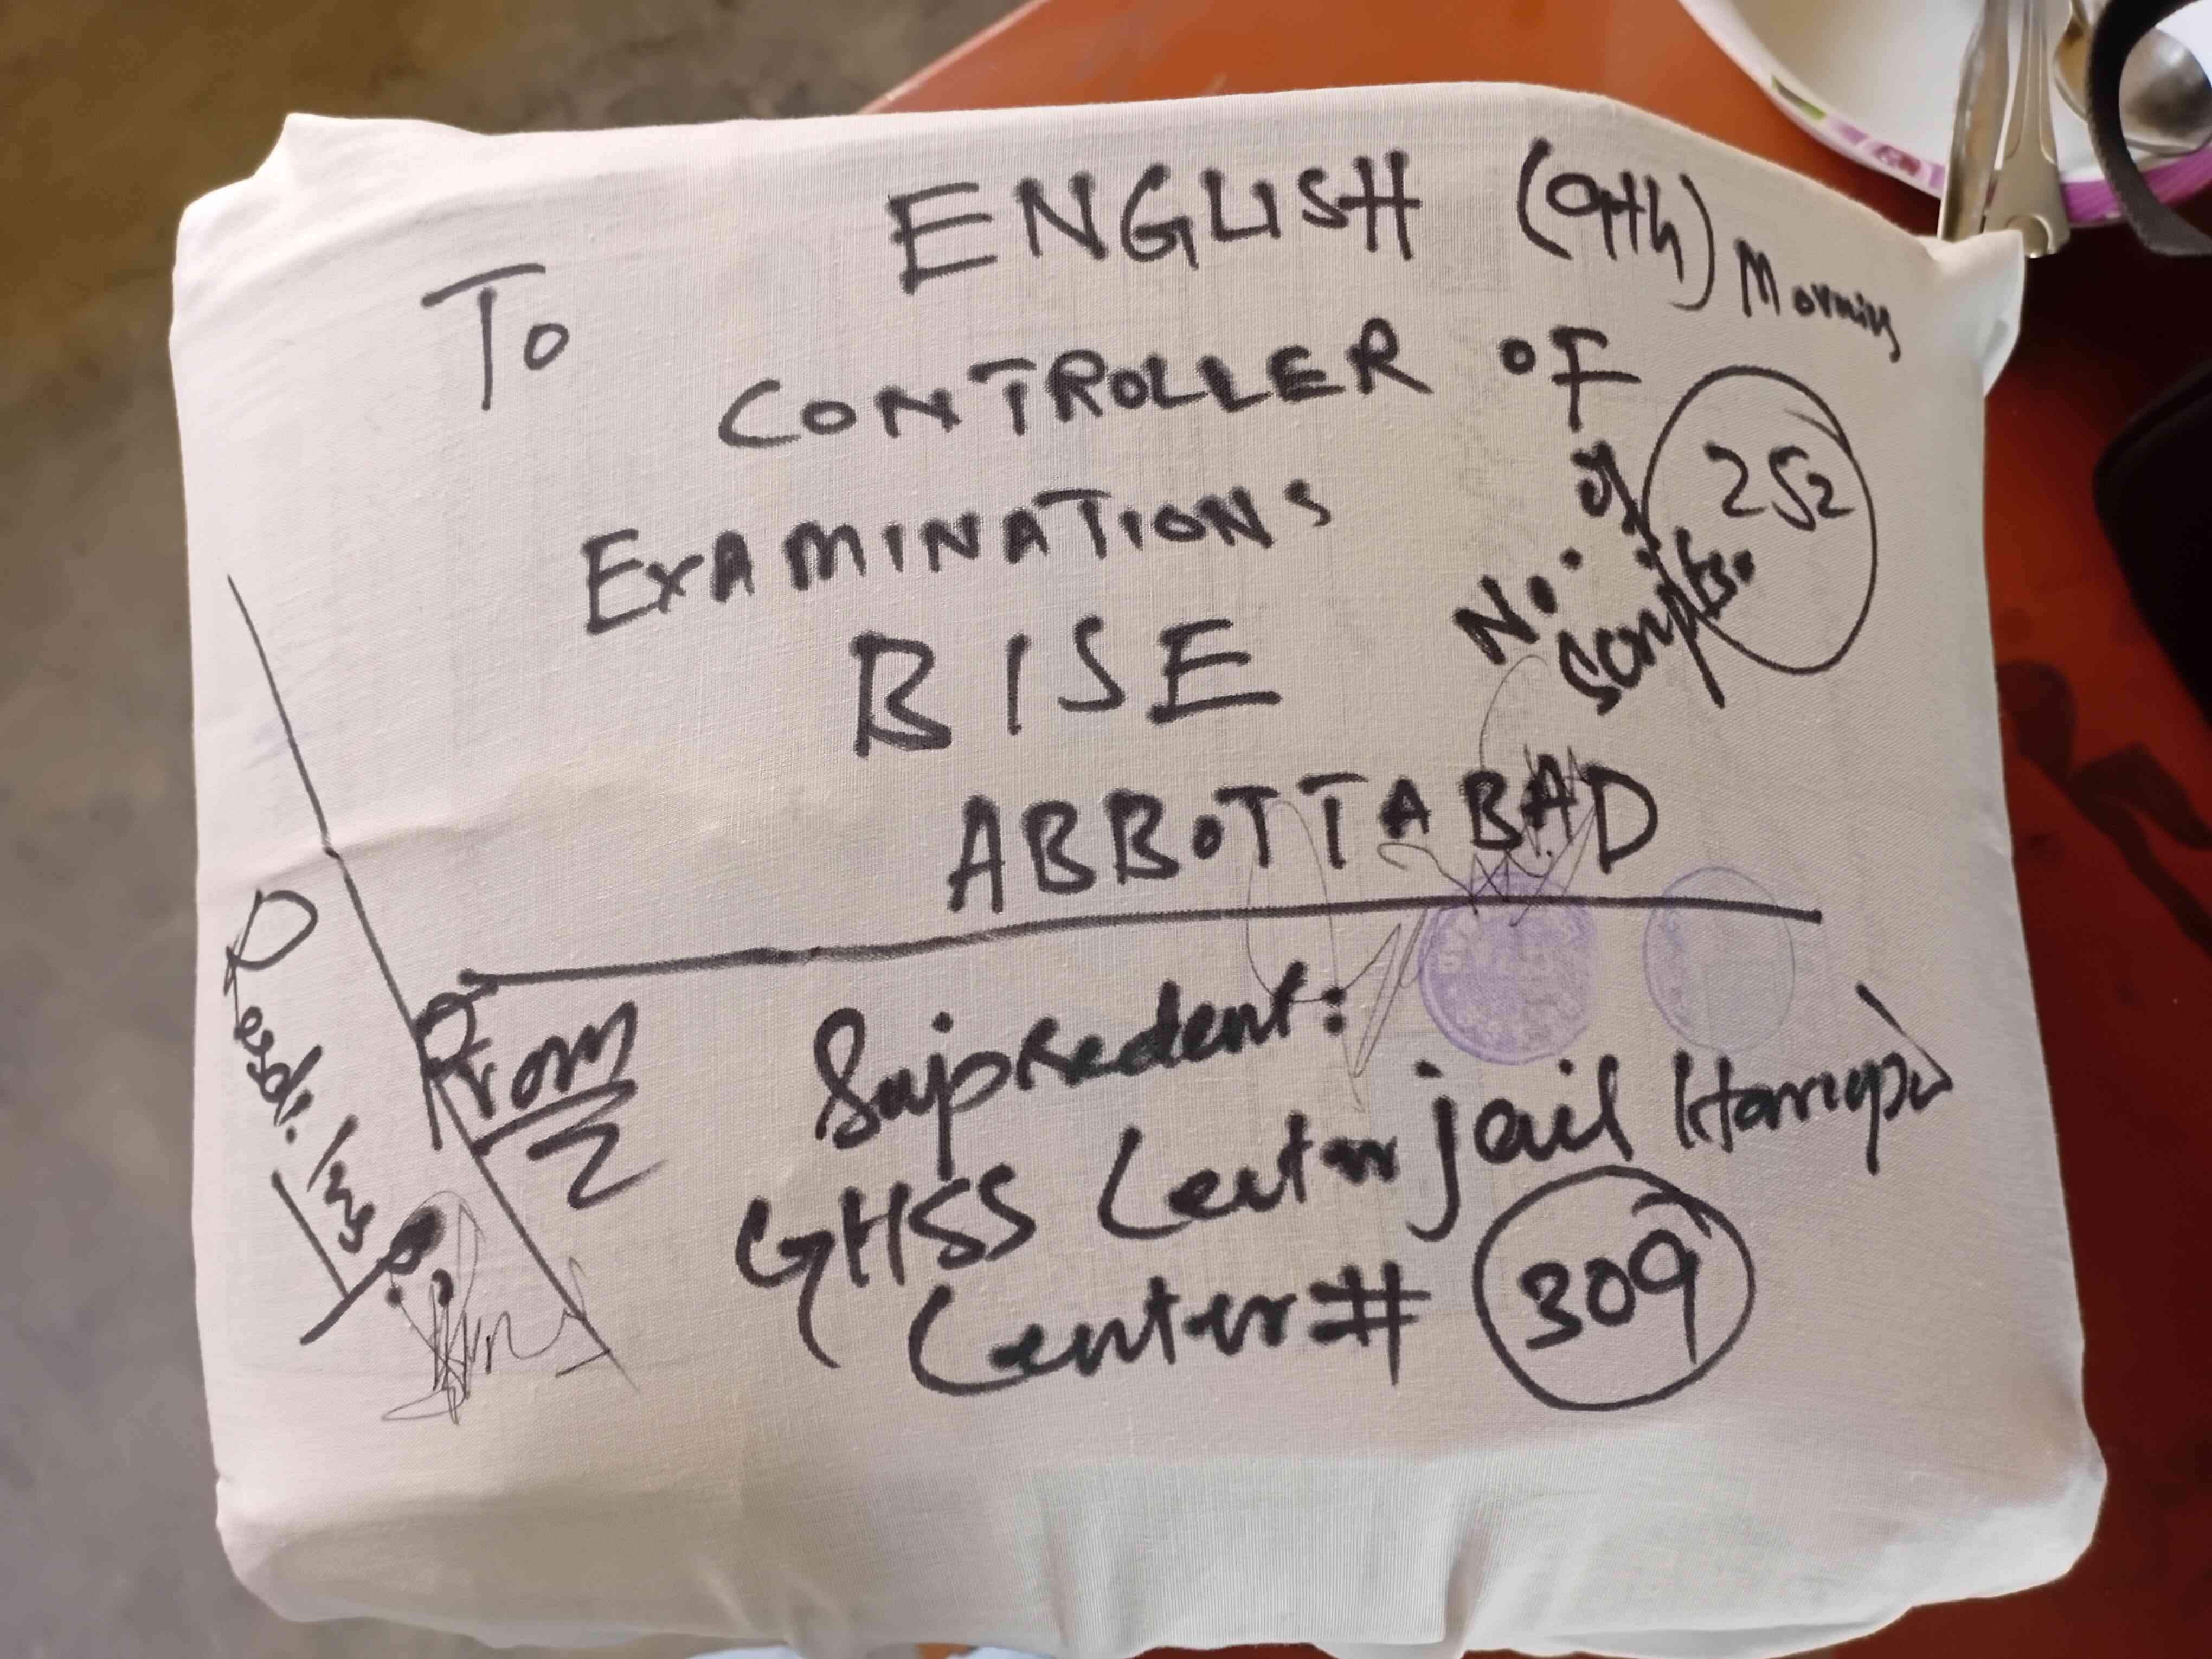 ENGLISH (9th) Morning
To
CONTROLLER OF
EXAMINATIONS
BISE
ABBOTTABAD
No. of scripts.
252
From
Supredent:
GHSS Center jail Haripur
Center # 309
Resdi. Ins